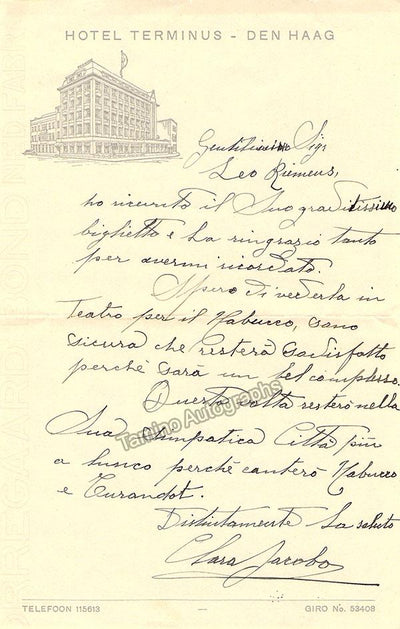 HOTEL TERMINUS - DEN HAAG
Gentilissimo Sig.
Leo Riemens,
ho ricevuto il Suo graditissimo
biglietto e La ringrazio tanto
per avermi ricordato.
Spero di vederla in
Teatro per il Nabucco, sono
sicura che resterà sodisfatto
perchè sarà un bel complesso.
Questa volta resterò nella
Sua simpatica Città più
a lungo perchè canterò Nabucco
e Turandot.
Distintamente La saluto
Clara Jacobo
Tamino Autographs
TELEFOON 115613 — GIRO No. 53408